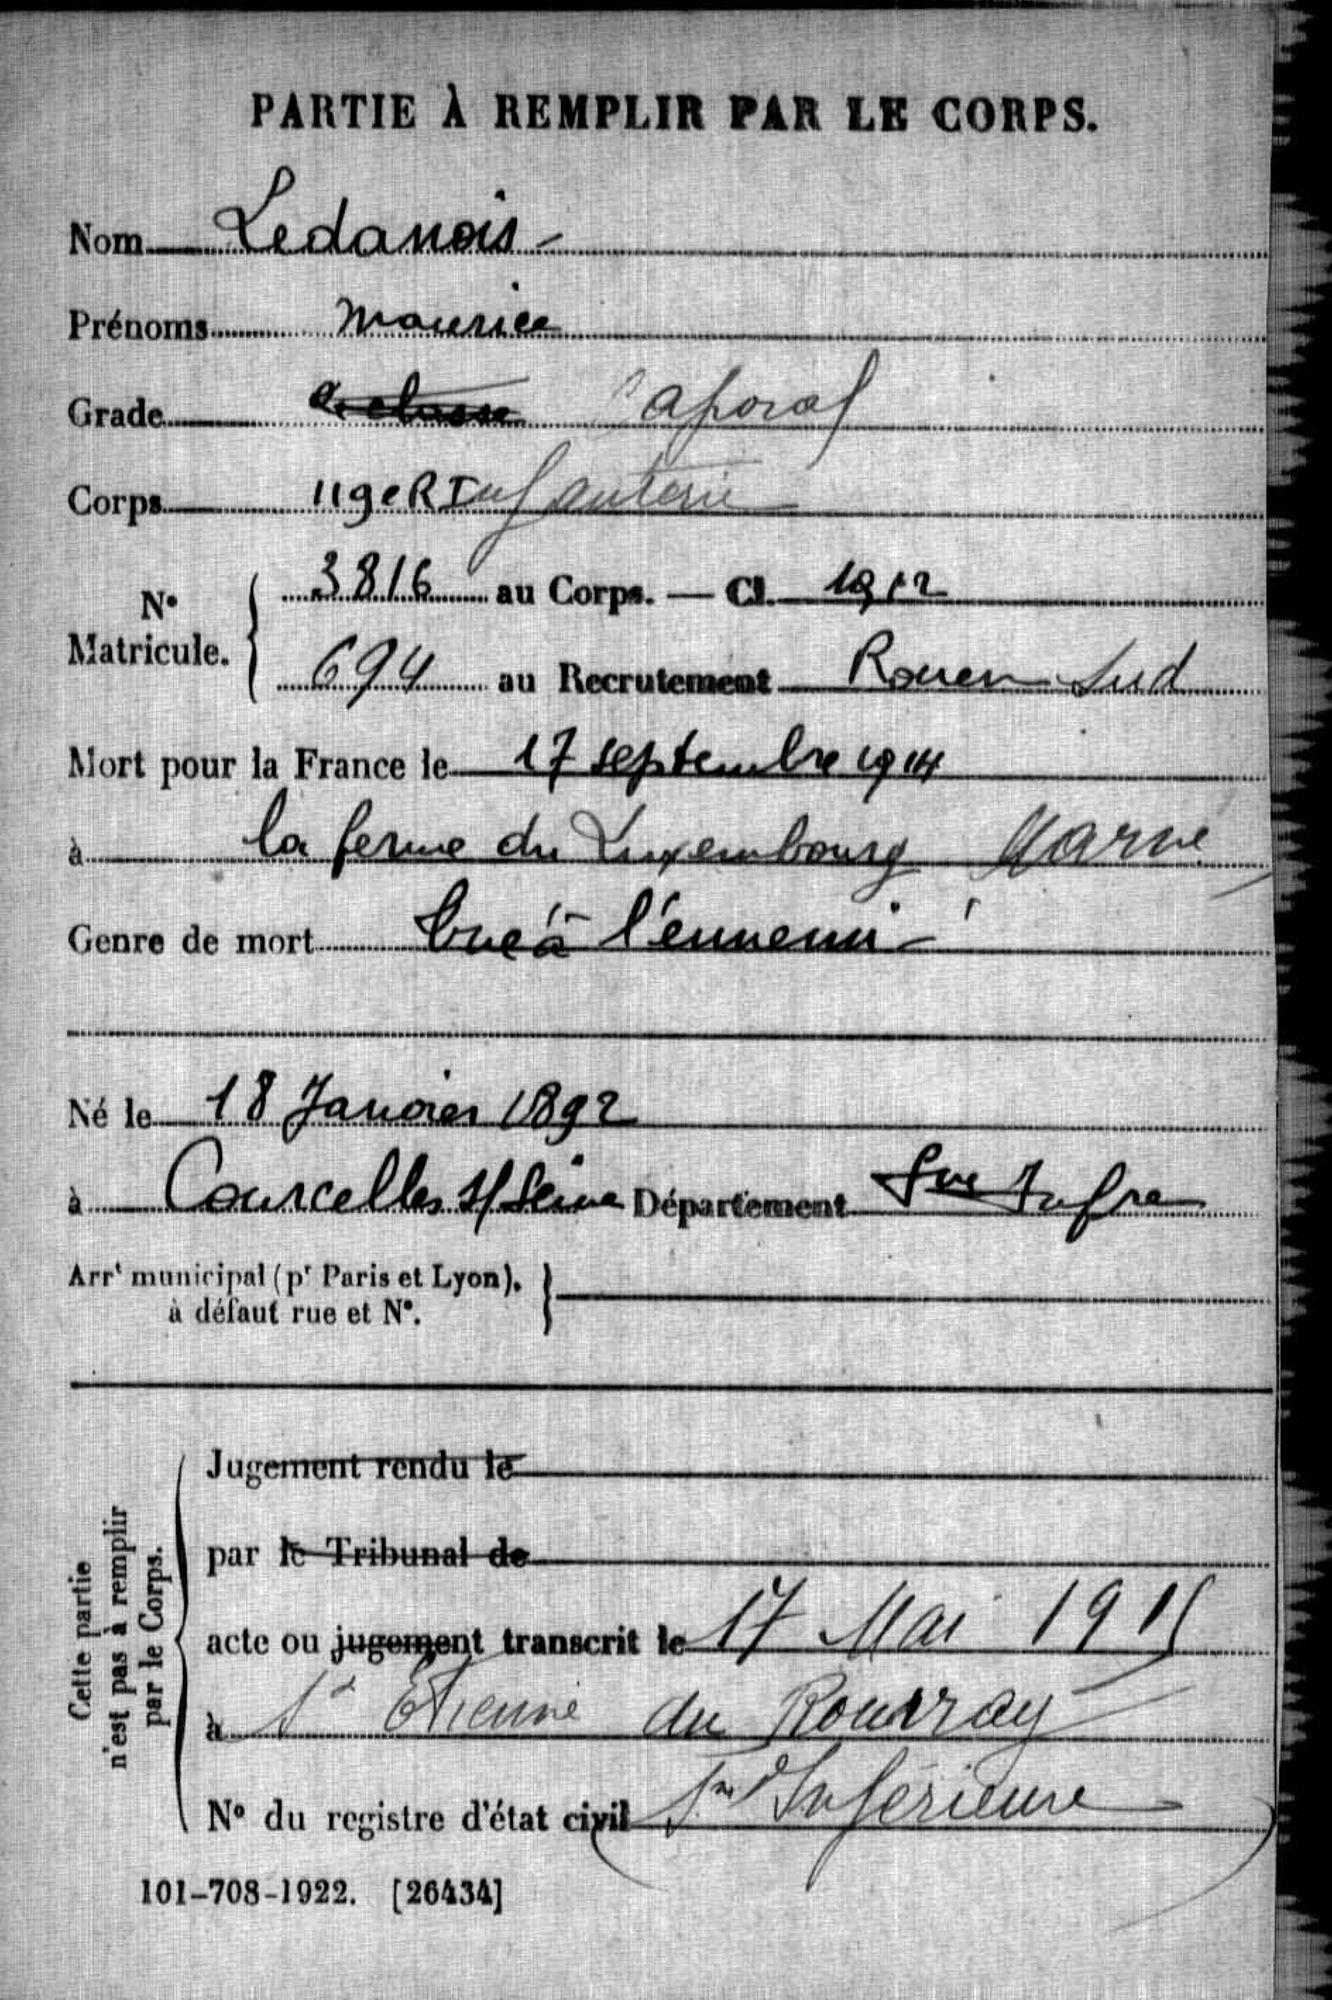 PARTIE À REMPLIR PAR LE CORPS.
Nom Ledanois
Prénoms Maurice
Grade 2e classe Caporal
Corps 119e R Infanterie
N° Matricule. 3816 au Corps. — Cl. 1912
694 au Recrutement Rouen Sud
Mort pour la France le 17 septembre 1914
à la ferme du Luxembourg Marne
Genre de mort tué à l'ennemi
Né le 18 Janvier 1892
à Courcelles s/ Seine Département Sne Infre
Arrt municipal (pr Paris et Lyon).
à défaut rue et N°.
Cette partie
n'est pas à remplir
par le Corps.
Jugement rendu le
par le Tribunal de
acte ou jugement transcrit le 17 Mai 1915
à St Etienne du Rouvray
N° du registre d'état civil Sne Inférieure
101-708-1922. [26434]